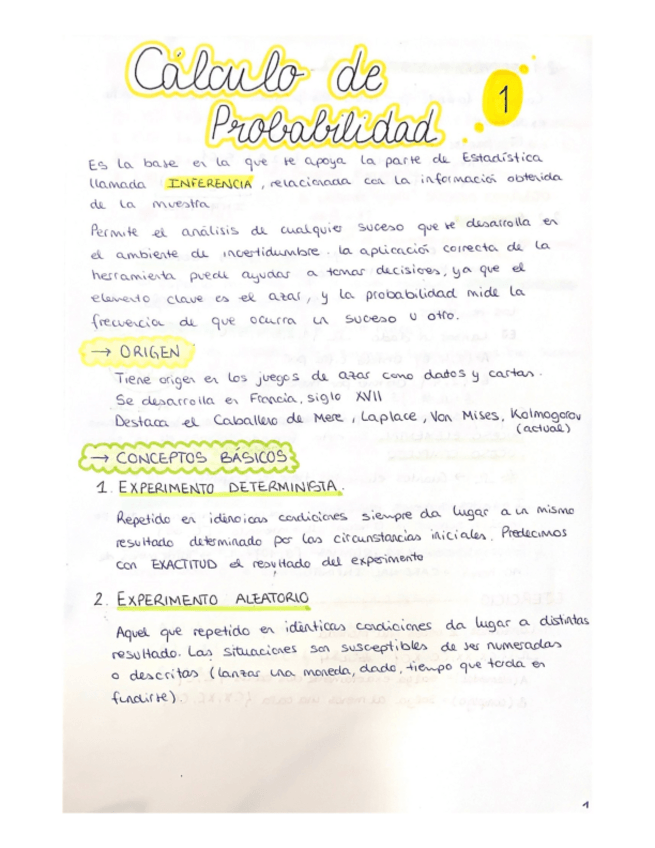 Cálculo de
Probabilidad
1
Es la base en la que se apoya la parte de Estadística
llamada INFERENCIA, relacionada con la información obtenida
de la muestra
Permite el análisis de cualquier suceso que se desarrolla en
el ambiente de incertidumbre. la aplicación correcta de la
herramienta puede ayudar a tomar decisiones, ya que el
elemento clave es el azar, y la probabilidad mide la
frecuencia de que ocurra un suceso u otro.
→ ORIGEN
Tiene origen en los juegos de azar como dados y cartas.
Se desarrolla en Francia, siglo XVII
Destaca el Caballero de Mere, Laplace, Von Mises, Kolmogorov
(actual)
→ CONCEPTOS BÁSICOS
1. EXPERIMENTO DETERMINISTA.
Repetido en idénticas condiciones siempre da lugar a un mismo
resultado determinado por las circunstancias iniciales. Predecimos
con EXACTITUD el resultado del experimento
2. EXPERIMENTO ALEATORIO
Aquel que repetido en idénticas condiciones da lugar a distintas
resultado. Las situaciones son susceptibles de ser numeradas
o descritas (lanzar una moneda, dado, tiempo que tarda en
fundirse)
1